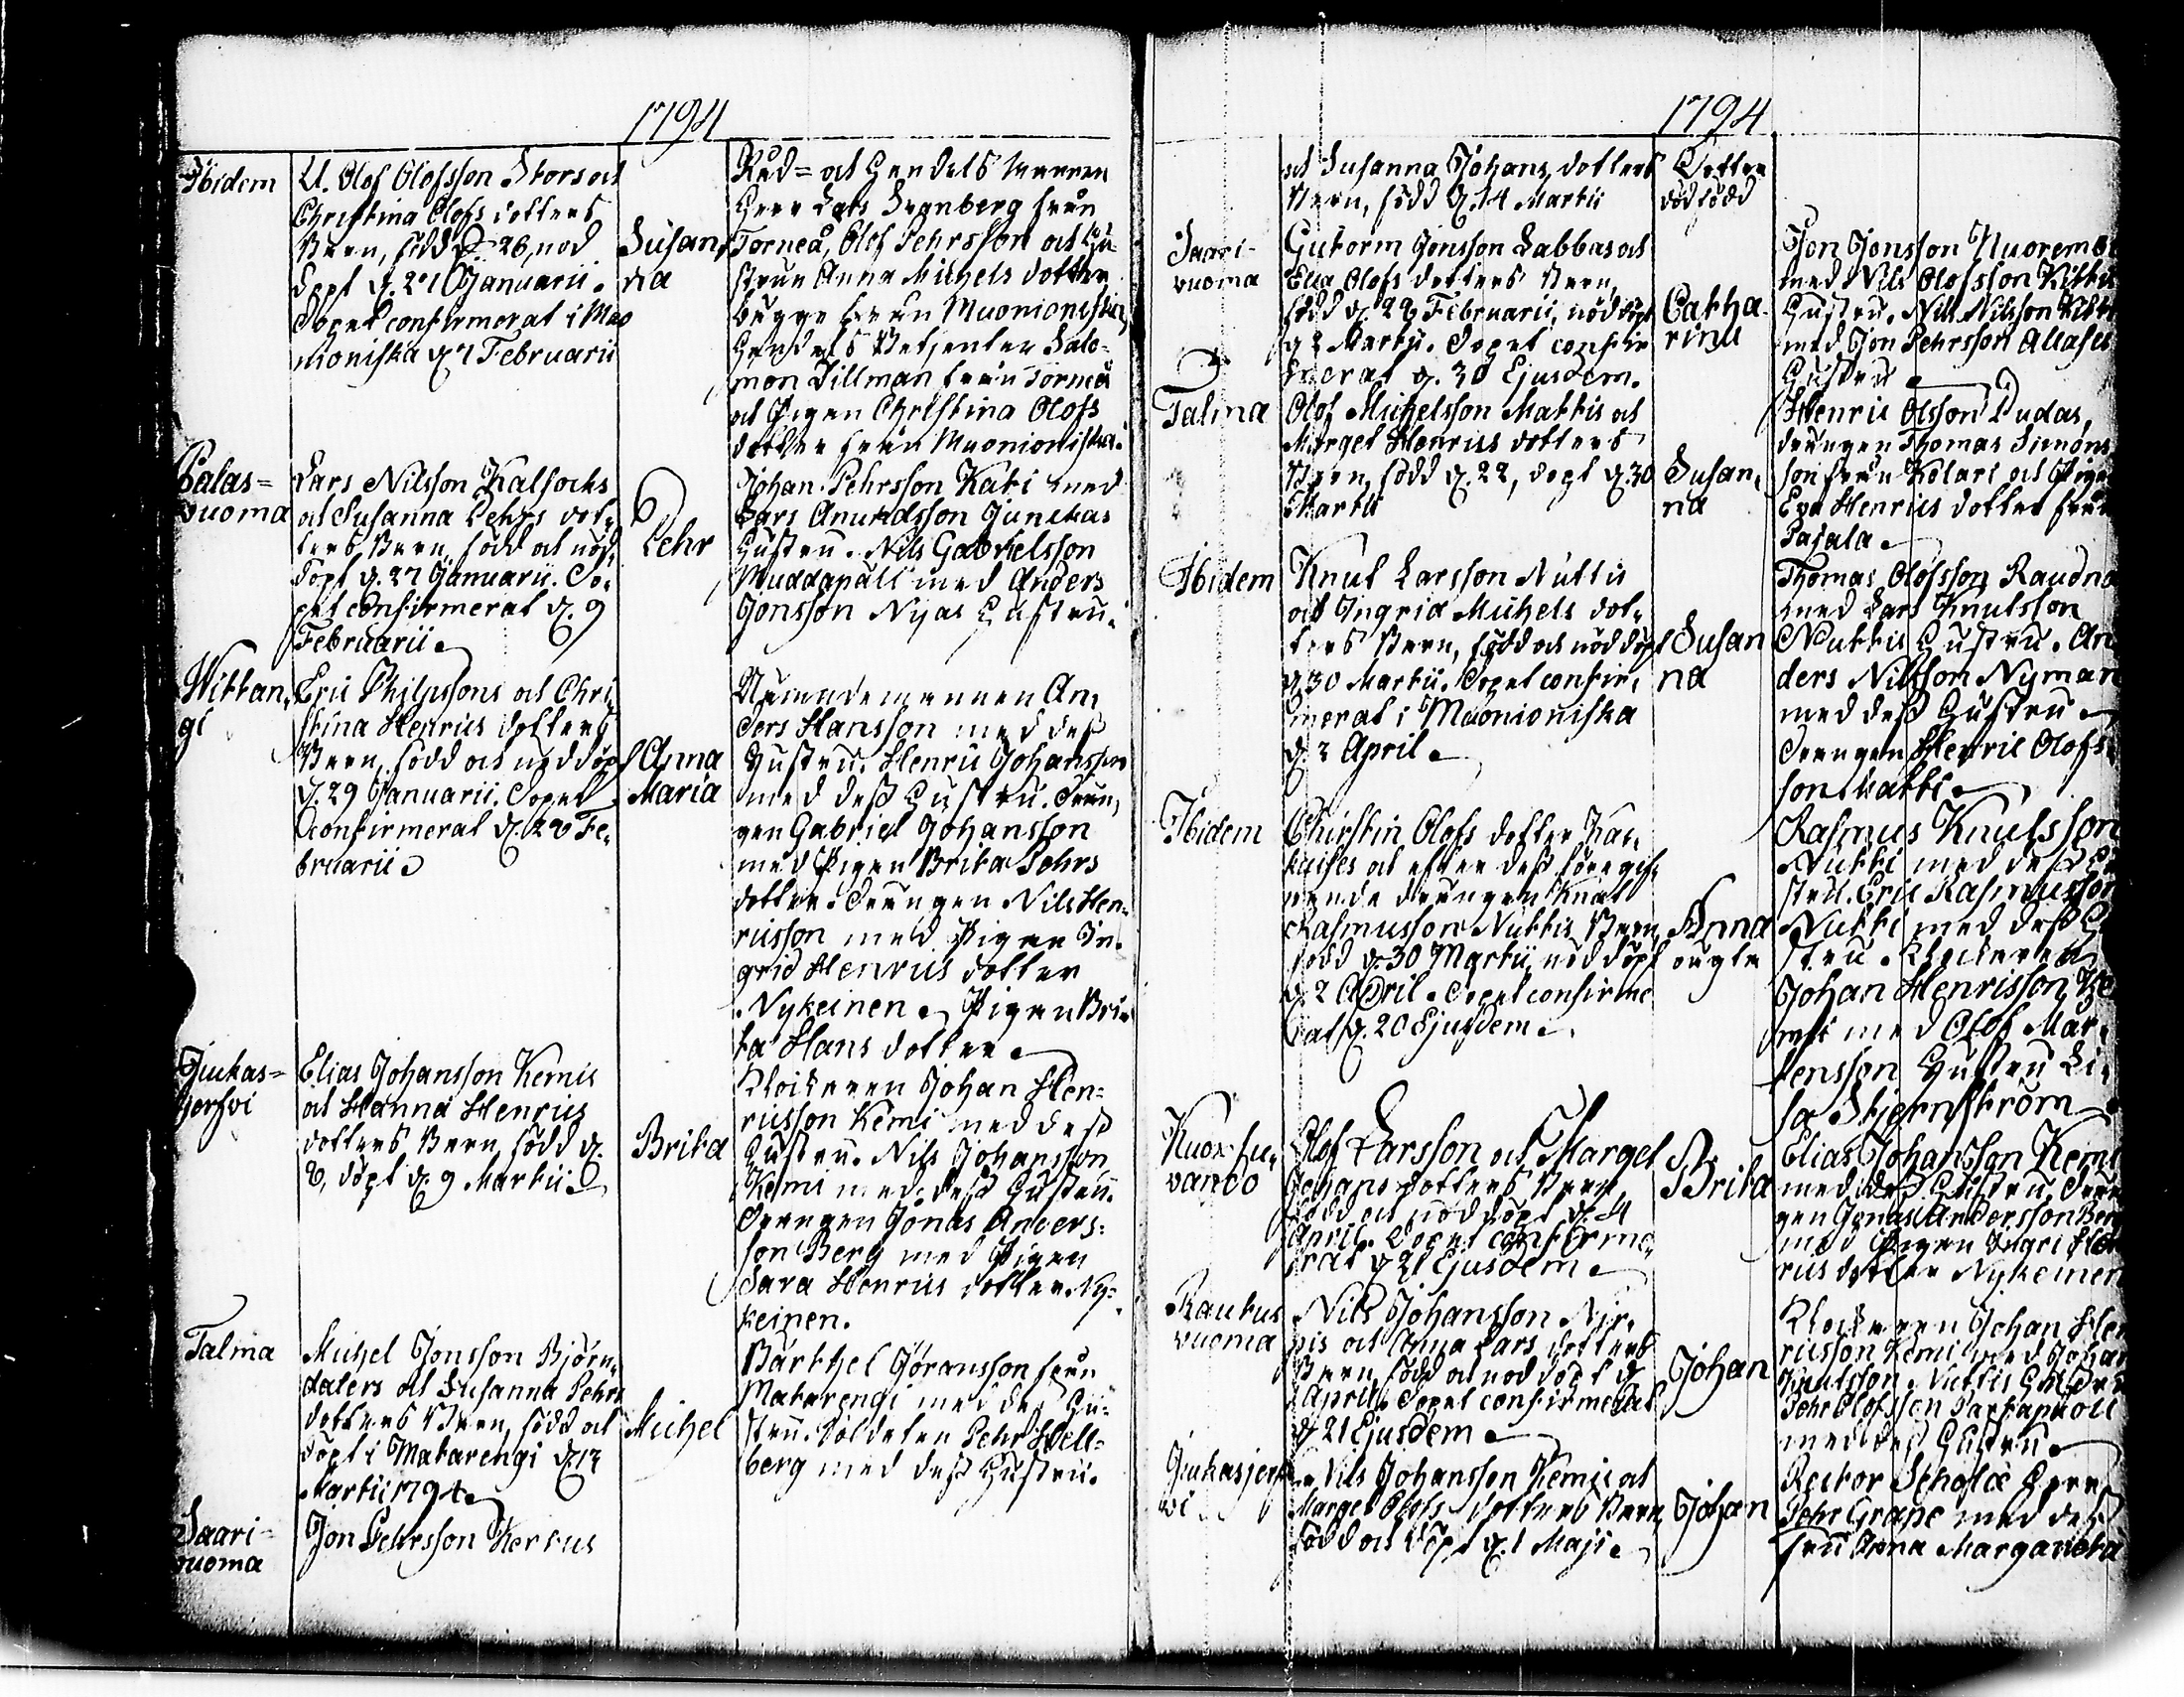 1794
Ibidem
U. Olof Olofsson Stors och
Christina Olofs dotters
Barn, född d. 26, nöd
döpt d. 27 Januarii.
Dopet confirmerat i Muo
nioniska d. 7 Februarii
Susan,
na
Råd= och Handels mannen
Herr Lars Svanberg från
Torneå, Olof Pehrsson och Hu
strun Anna Michels dotter
bägge från Muonioniska,
Handels Betjenten Salo-
mon Dillman från Torneå
och Pigan Christina Olofs
dotter från Muonioniska.
Talas=
vuoma
Lars Nilsson Kalsocks
och Susanna Pehrs dot,
ters Barn, född och nöd,
döpt d. 27 Januarii. Do,
pet confirmerat d. 9
Februarii.
Pehr
Johan Pehrsson Kati med
Lars Amundsson Junekas
Hustru. Nils Gabrielsson
Muddapäll med Anders
Jonsson Nyas Hustru.
Wittan,
gi
Eric Philpssons och Chri,
stina Henrics dotters
Barn, född och nöddöpt
d. 29 Januarii. Dopet
confirmerat d. 28 Fe,
bruarii.
Anna
Maria
Nämndemannen An,
ders Hansson med dess
Hustru. Henric Johansson
med dess Hustru. Drän,
gen Gabriel Johansson
med Pigan Brita Pehrs
dotter. Drängen Nils Hen-
ricsson med Pigan In-
grid Henrics dotter
Nykeinen. Pigan Bri-
ta Hans dotter.
Jukas=
jerfvi
Elias Johansson Kemis
och Hanna Henrics
dotters Barn, född d.
8, döpt d. 9 Martii.
Brita
Klockaren Johan Hen-
ricsson Kemi med dess
Hustru. Nils Johansson
Kemi med dess Hustru.
Drängen Jonas Anders-
son Berg med Pigan
Sara Henrics dotter Ny-
keinen.
Talma
Michel Jonsson Björn-
dalers och Susanna Pehrs
dotters Barn, född och
döpt i Matarengi d. 12
Martii 1794.
Michel
Barthel Göransson från
Matarengi med dess Hu-
stru. Soldaten Pehr Hell-
berg med dess Hustru.
Saari-
vuoma
Jon Pehrsson Kerkus
1794
och Susanna Johans dotters
Barn, född d. 14 Martii
Dotter
dödfödd
Saari-
vuoma
Gutorm Jonsson Labbas och
Elia Olofs dotters Barn,
född d. 28 Februarii, nöddöpt
d. 2 Martii. Dopet confir
merat d. 30 Ejusdem.
Catha-
rina
Jon Jonsson Nuorema
med Nils Olofsson Kitti
Hustru. Nils Nilsson Kitti
med Jon Pehrsson Allases
Hustru.
Talma
Olof Michelsson Mattis och
Marget Henrics dotters
Barn, född d. 22, döpt d. 30
Martii
Susan,
na
Henric Olsson Dudas,
drängen Thomas Simons
son från Kolari och Pigan
Eva Henrics dotter från
Pajala.
Ibidem
Knut Larsson Nuttis
och Ingrid Michels dot,
ters Barn, född och nöddöpt
d. 30 Martii. Dopet confir,
merat i Muonioniska
d. 2 April.
Susan
na
Thomas Olofsson Raudna
med Lars Knutsson
Nuttis Hustru. An
ders Nilsson Nyman
med dess Hustru.
Drängen Henric Olofs
son Matti.
Ibidem
Christin Olofs dotter Kar,
kuises och efter dess föregif,
vande drängen Knut
Rasmusson Nuttis Barn,
född d. 30 Martii, nöddöpt
d. 2 April. Dopet confirme
rat d. 20 Ejusdem.
Anna
oägta
Rasmus Knutsson
Nutti med dess Hu
stru. Eric Rasmusson
Nutti med dess Hu
stru. Klockaren
Johan Henrisson Ke
mi med Olof Mar-
tensson Hustru Li-
sa Stjernström
Kuoxsu,
vando
Olof Larsson och Marget
Johans dotters Barn,
född och nöddöpt d. 4
April. Dopet confirme,
rat d. 21 Ejusdem.
Brita
Elias Johansson Kemi
med dess Hustru. Drän
gen Jonas Andersson Berg
med Pigan Ingri Hen
rics dotter Nykeinen
Rautus
vuoma
Nils Johansson Nir,
pis och Anna Lars dotters
Barn, född och nöd döpt d.
April. Dopet confirmerat
d. 21 Ejusdem.
Johan
Klockaren Johan Hen
ricsson Kemi med Johan
Knutsson Nuttis Hustru
Pehr Olofsson Partapuoli
med dess Hustru.
Jukasjerf
vi
Nils Johansson Kemis och
Marget Olofs dotters Barn,
född och döpt d. 1 Maji.
Johan
Rector Scholæ Herr
Pehr Grape med dess
Fru Anna Margareta